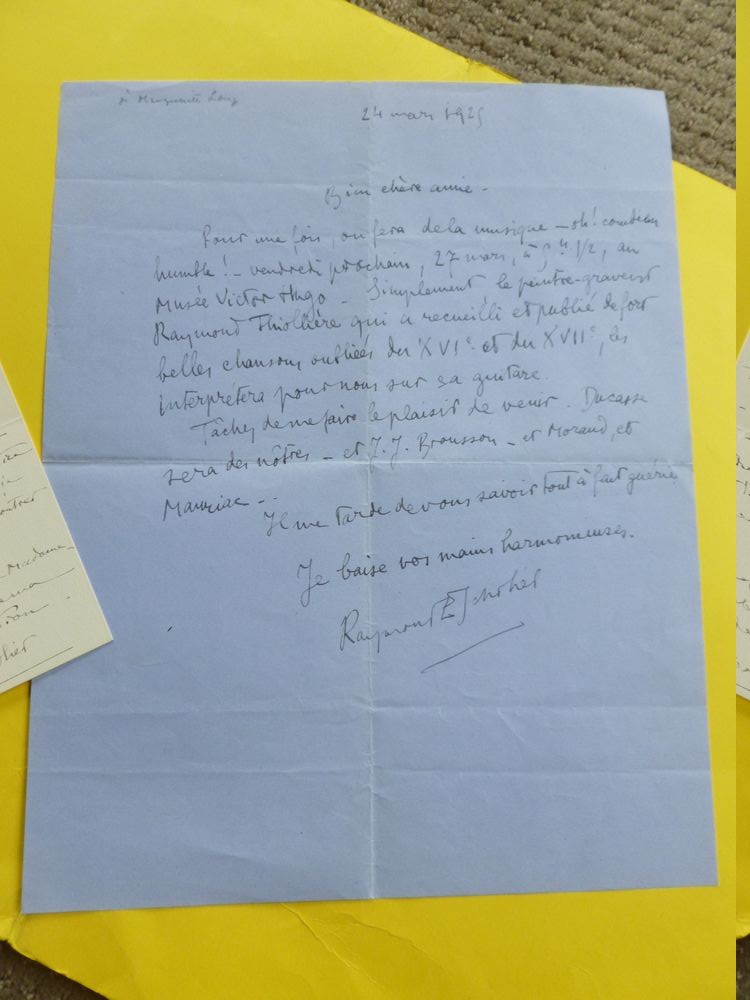 à Marguerite Long
24 mars 1925
Bien chère amie -
Pour une fois, on fera de la musique - oh! combien
humble! - vendredi prochain, 27 mars, à 5 h 1/2, au
Musée Victor Hugo - Simplement le peintre-graveur
Raymond Thiollière qui a recueilli et publié de fort
belles chansons oubliées du XVIe et du XVIIe, les
interprètera pour nous sur sa guitare.
Tâchez de me faire le plaisir de venir. Ducasse
sera des nôtres - et J. J. Brousson - et Morand, et
Mauriac..
Il me tarde de vous savoir tout à fait guérie.
Je baise vos mains harmonieuses.
Raymond Escholier
Madame